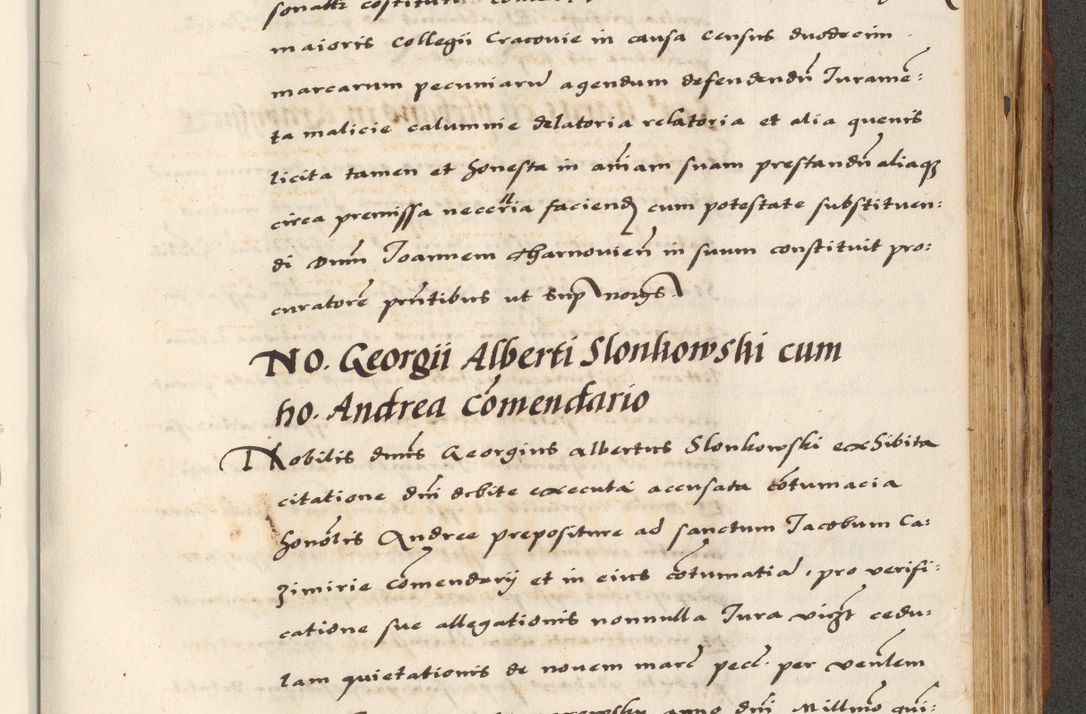 maioris Collegii Cracovie in causa census duodecim
marcarum pecuniarũ agendum defendendũ Iuramẽ:
ta malicie calumnie delatoria relatoria et alia quevis
licita tamen et honesta in animam suam prestandũ aliaqȝ
circa premissa neceria faciend cum potestate substituen:
di Dnm Ioannem Tharnovieñ in suum constituit pro:
curatorẽ prñtibus ut sup
No. Georgii Alberti Slonkowski cum
ho. Andrea Cõmendario
Nobilis dnus Georgius Albertus Slonkowski exhibita
citatione dñi debite executa accusata cõtumacia
honõlis Andree prepositure ad sanctum Iacobum Ca:
zimirie Cõmendarij et in eius cõtumatiã, pro verifi:
catione sue allegationis nonnulla Iura vidȝt cedu:
lam quietationis de novem marc̃ pecc̃. per veñlem
anno dñi Millmo qui: